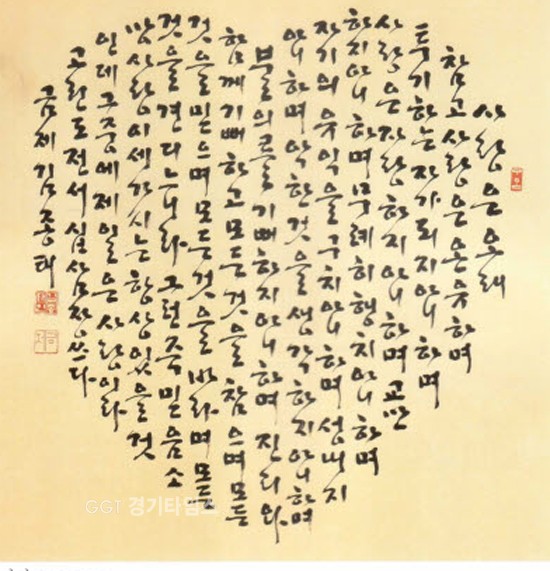 사랑은 오래
참고 사랑은 온유하며
투기하는 자가 되지 아니하며
사랑은 자랑하지 아니하며 교만
하지 아니하며 무례히 행치 아니하며
자기의 유익을 구치 아니하며 성내지
아니하며 악한 것을 생각하지 아니하며
불의를 기뻐하지 아니하며 진리와
함께 기뻐하고 모든 것을 참으며 모든
것을 믿으며 모든 것을 바라며 모든
것을 견디느니라 그런즉 믿음 소
망 사랑 이 세 가지는 항상 있을 것
인데 그 중에 제일은 사랑이라
고린도전서 십삼장 쓰다
금제 김종태
GGT 경기타임스